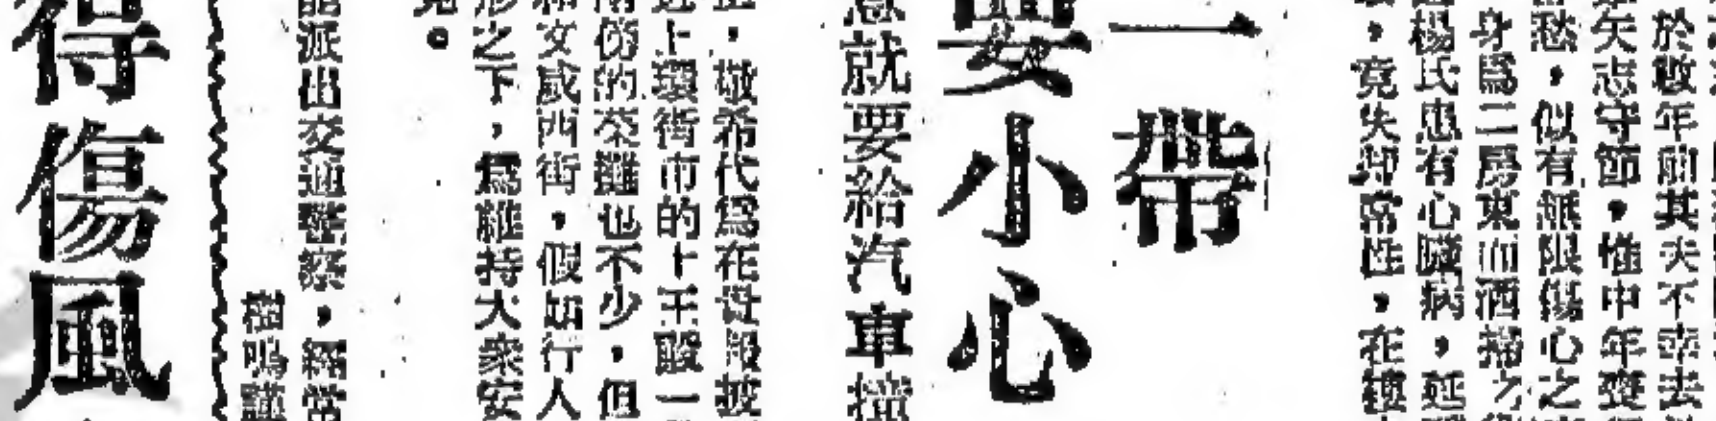 於數年前其夫不幸去
矢志守節，惟中年喪
愁，似有無限傷心之
身爲二房東而洒掃之
楊氏患有心臟病，延
，竟失掉常性，在
一帶
要小心
就要給汽車撞
，敬希代爲在貴報披
上環街市的十王殿一
傍的茶攤也不少，但
文咸西街，假如行人
形之下，爲維持大衆安
見。
派出交通警察，經常
樹鳴謹
得傷風